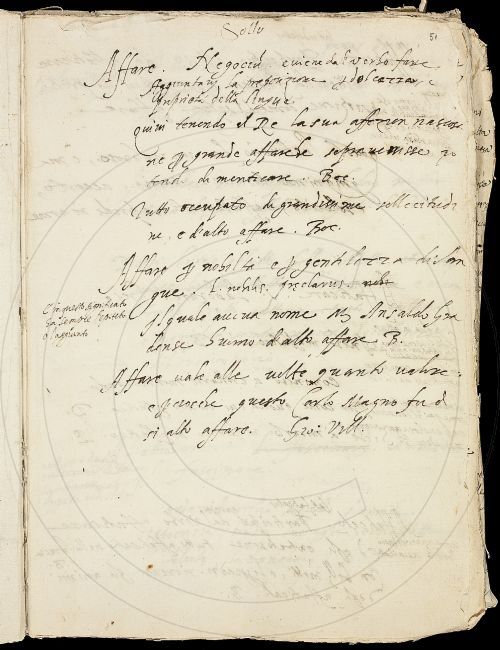 51
Affare. Negociu. e viene dal verbo fare
Aggiuntavi la prepositione p dolcezza, e
proprietà della lingua.
Quivi tenendo il Re la sua affezion nascosa
ne p grande affare che sopravenisse
dimenticare. Boc.
Tutto occupato di grandissime sollecitudi
ni, e d'alto affare. Boc.
Affare p nobiltà e p gentilezza di san
gue. L. nobilis. preclarus.
e in questo significato
ha sempre
o aggiunto
il quale aveva nome M Ansaldo Gra
dense huomo d'alto affare B.
Affare vale alle volte quanto valore.
e perche questo Carlo Magno fu di
si alto affare. Gio: Vill.